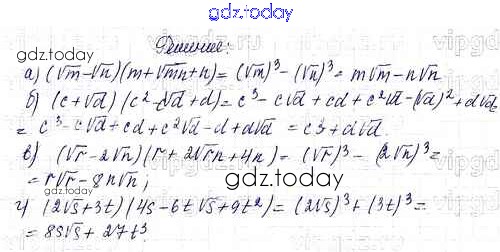 gdz.today
Решение:
gdz.today
а) (√m-√n)(m+√mn+n)=(√m)³-(√n)³=m√m-n√n
б) (c+√d)(c²-√d+d)=c³-c√d+cd+c²√d-(√d)²+d√d
= c³-c√d+cd+c²√d-d+d√d = c3+d√d.
в) (√r-2√n)(r+2√rn+4n)=(√r)³-(2√n)³=
=r√r-8n√n;
gdz.today
г) (2√s+3t)(4s-6t√s+9t²)=(2√s)³+(3t)³=
=8s√s+27t³